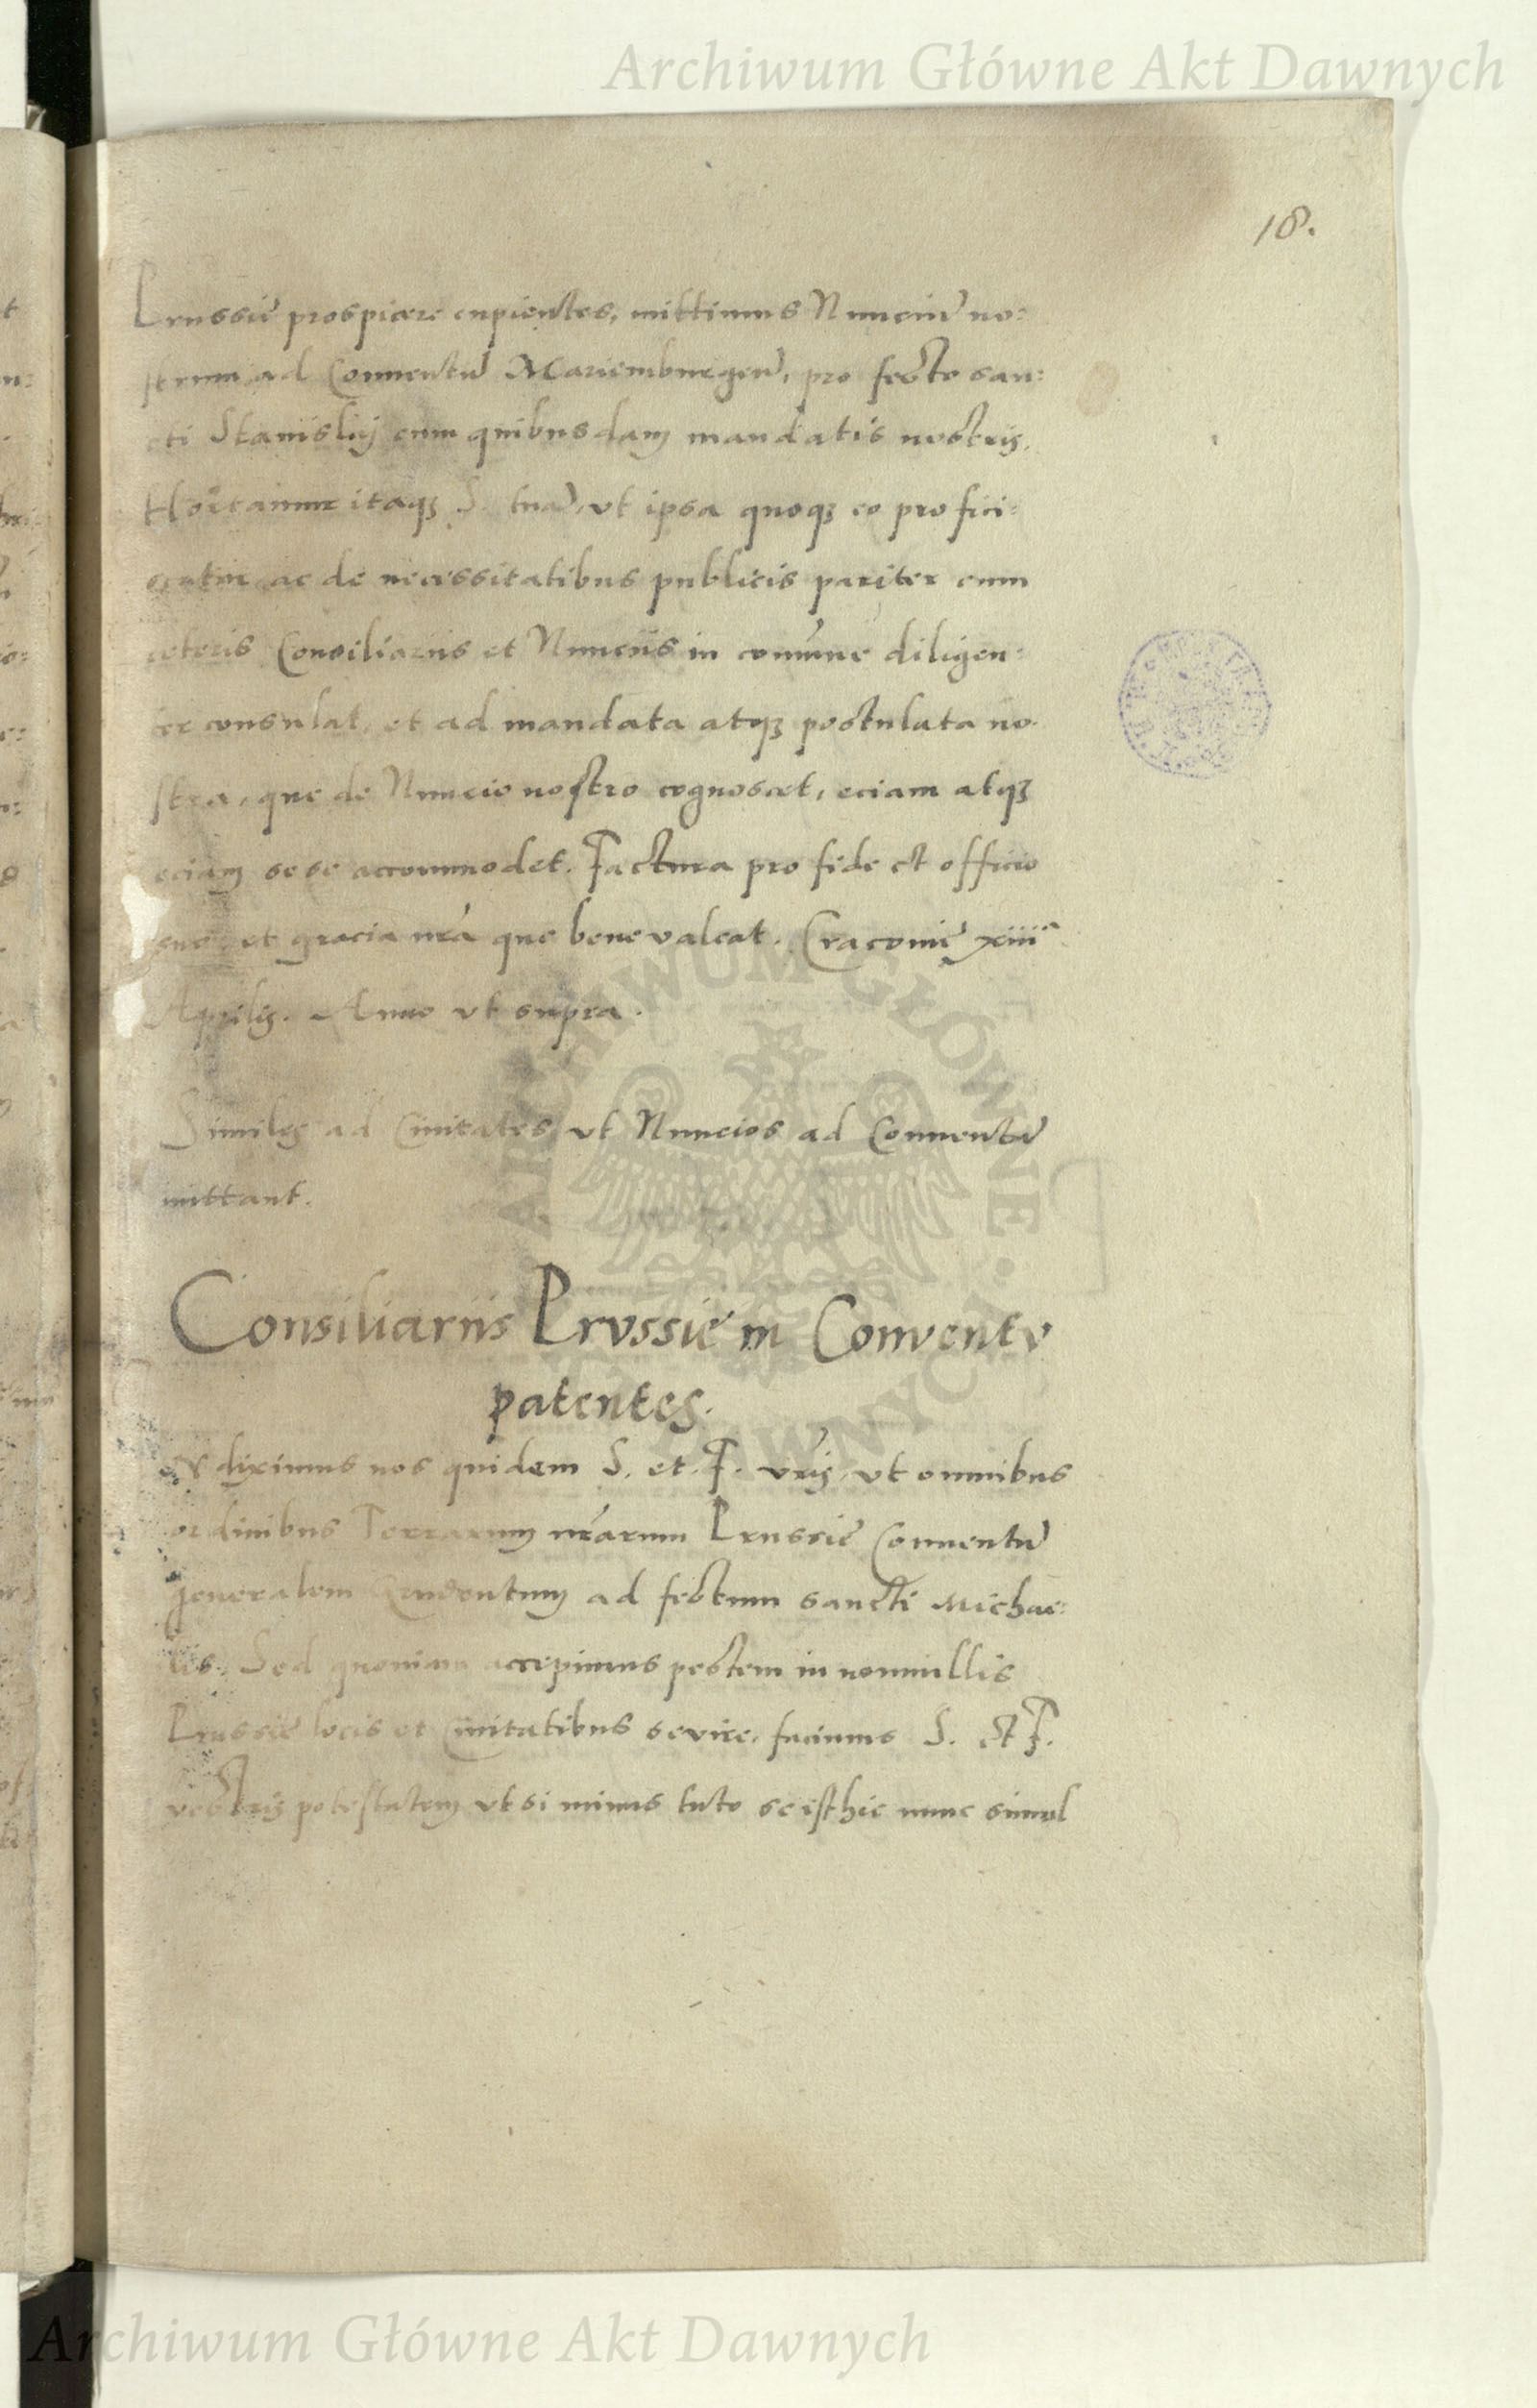 Archiwum Główne Akt Dawnych
18.
Prussie prospicere cupientes, mittimus Nunciũ no:
strum ad Conuentũ Mariemburgeñ, pro festo san:
cti Stanislai cum quibusdam mandatis nostris.
Hortamur itaqȝ S. tuã, ut ipsa quoqȝ eo profici:
scatur ac de necessitatibus publicis pariter cum
ceteris Consiliariis et Nunciis in comũne diligen:
ter consulat, et ad mandata atqȝ postulata no.
stra, que de Nuncio nostro cognoscet, eciam atqȝ
eciam sese accommodet. Factura pro fide et officio
suo, et gracia nrã que bene valeat. Cracouie xiiiª
Aprilis. Anno ut supra.
Similes ad Ciuitates ut Nuncios ad Conuentũ
mittant.
Consiliariis Prvssie in Conventv
patentes.
diximus nos quidem S. et. F. vrĩs, ut omnibus
ordinibus Terrarum nrãrum Prussie Conuentũ
generalem ad festum sancti Michae:
lis. Sed quoniam accepimus pestem in nonnullis
Prussie locis et Ciuitatibus sevire, facimus S. et F.
vestris potestatem ut si minus tuto se isthic nunc simul
ARCHIWUM GŁÓWNE AKT DAWNYCH
Archiwum Główne Akt Dawnych